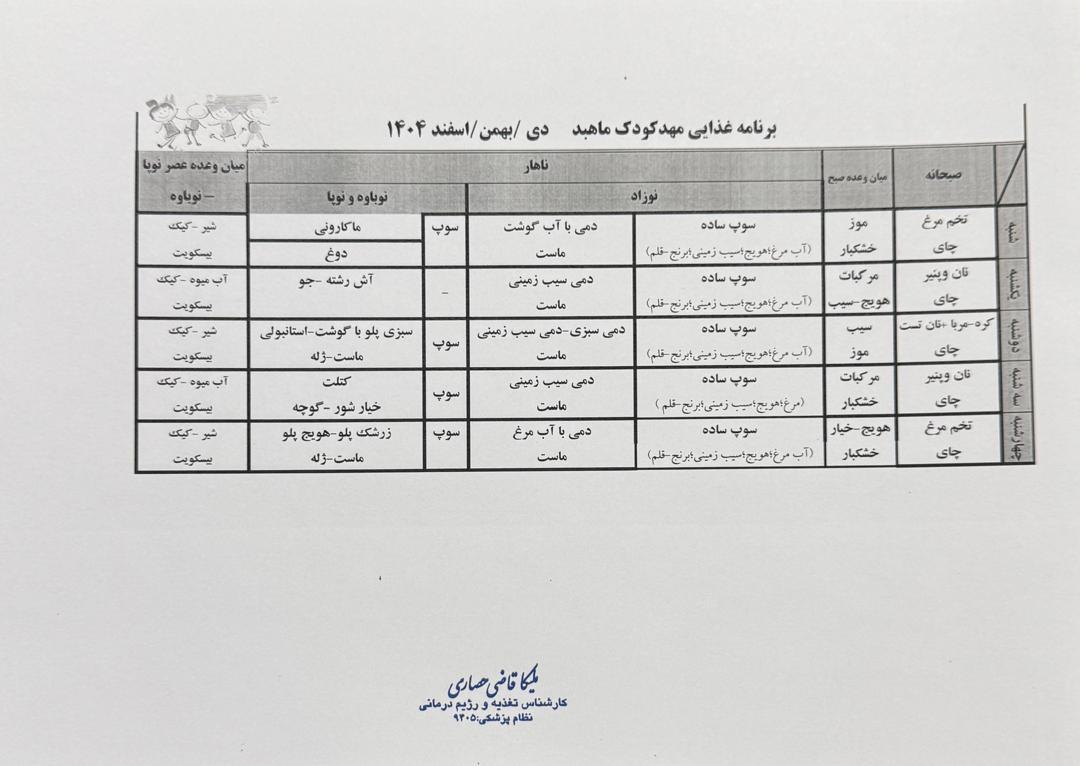 برنامه غذایی مهدکودک ماهبد دی /بهمن/اسفند ۱۴۰۴
صبحانه
میان وعده صبح
ناهار
میان وعده عصر نوپا
– نوباوه
نوزاد
نوباوه و نوپا
شنبه
تخم مرغ
چای
موز
خشکبار
سوپ ساده
(آب مرغ؛هویج؛سیب زمینی؛برنج-قلم)
دمی با آب گوشت
ماست
سوپ
ماکارونی
دوغ
شیر -کیک
بیسکویت
یکشنبه
نان وپنیر
چای
مرکبات
هویج-سیب
سوپ ساده
(آب مرغ؛هویج؛سیب زمینی؛برنج-قلم)
دمی سیب زمینی
ماست
–
آش رشته -جو
آب میوه -کیک
بیسکویت
دوشنبه
کره-مربا +نان تست
چای
سیب
موز
سوپ ساده
(آب مرغ؛هویج؛سیب زمینی؛برنج-قلم)
دمی سبزی-دمی سیب زمینی
ماست
سوپ
سبزی پلو با گوشت-استانبولی
ماست-ژله
شیر -کیک
بیسکویت
سه شنبه
نان وپنیر
چای
مرکبات
خشکبار
سوپ ساده
(مرغ؛هویج؛سیب زمینی؛برنج-قلم )
دمی سیب زمینی
ماست
سوپ
کتلت
خیار شور -گوجه
آب میوه -کیک
بیسکویت
چهارشنبه
تخم مرغ
چای
هویج-خیار
خشکبار
سوپ ساده
(آب مرغ؛هویج؛سیب زمینی؛برنج-قلم)
دمی با آب مرغ
ماست
سوپ
زرشک پلو-هویج پلو
ماست-ژله
شیر -کیک
بیسکویت
ملیکا قاضی حصاری
کارشناس تغذیه و رژیم درمانی
نظام پزشکی:۹۴۰۵